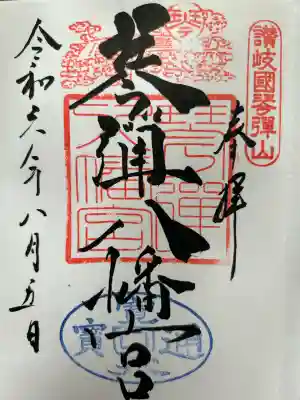 讃岐國琴弾山
奉拝
琴弾八幡宮
令和六年八月五日